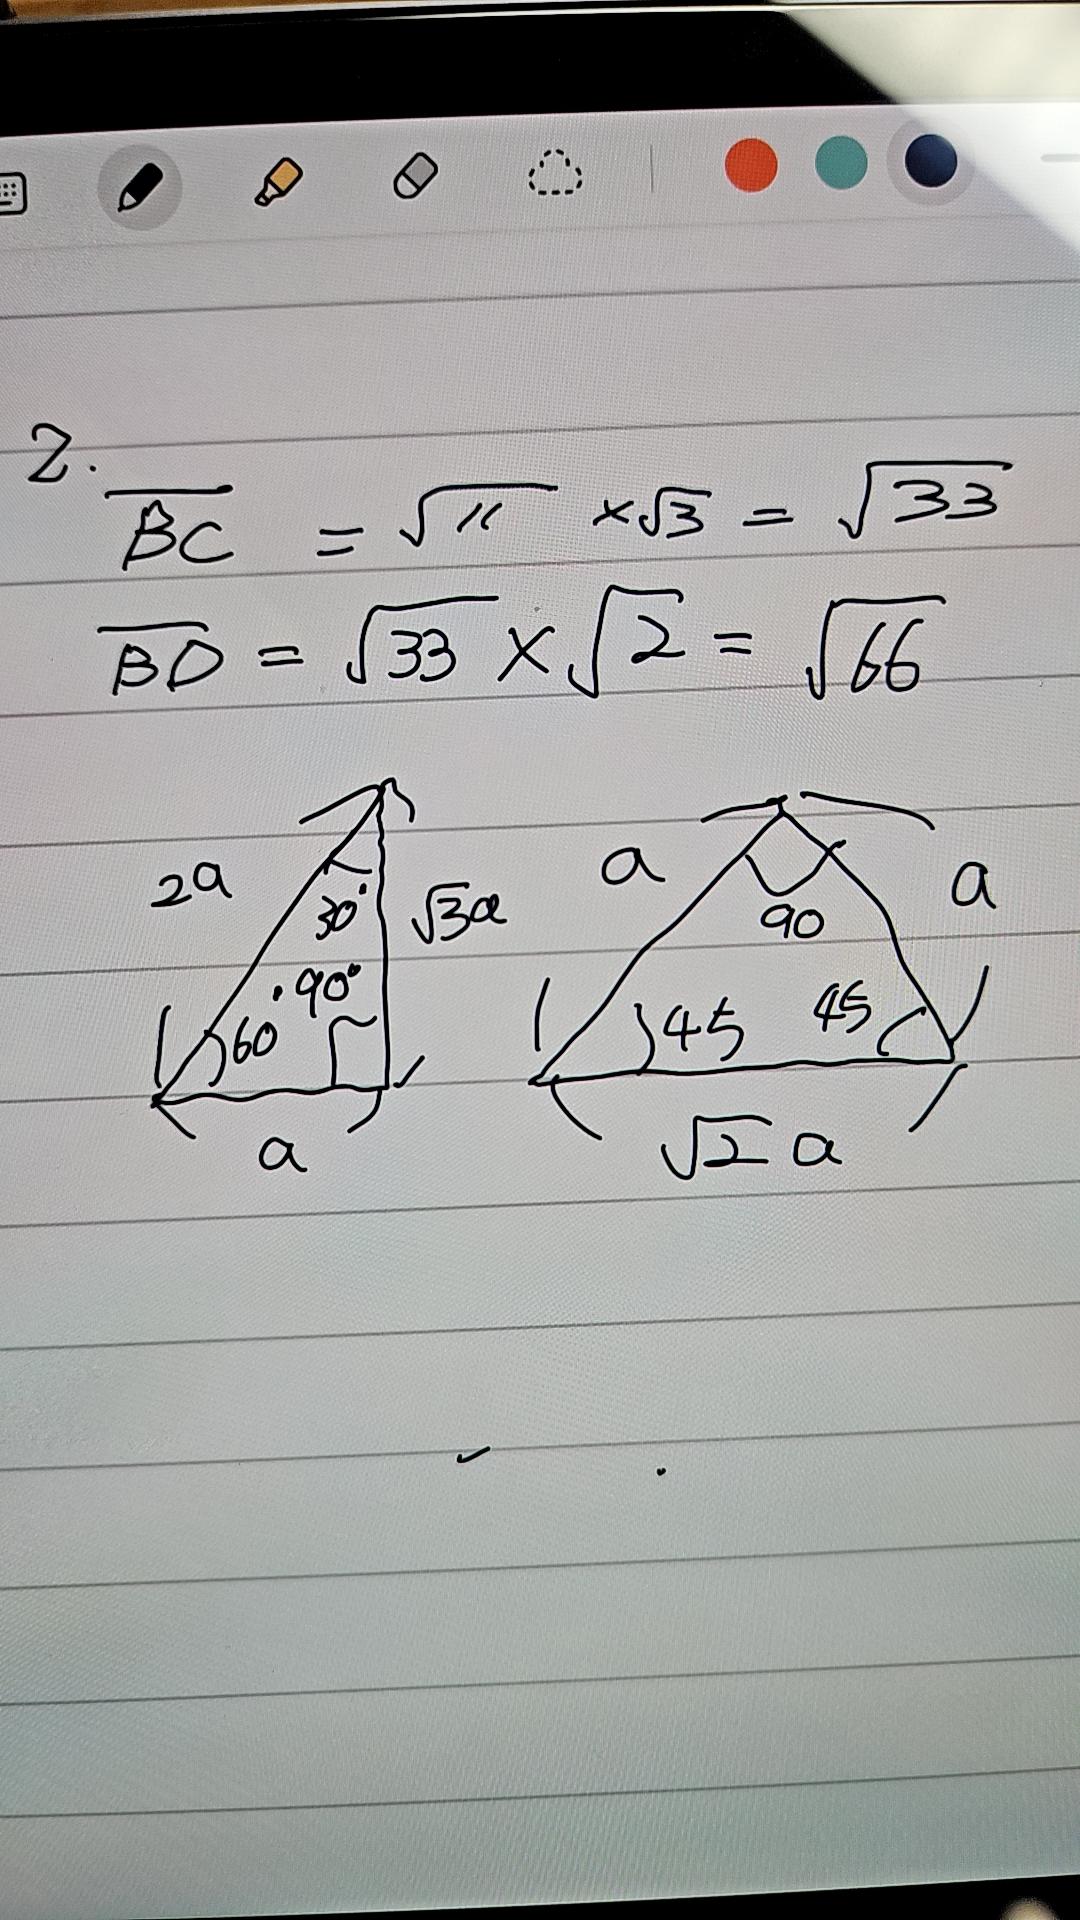 2.
BC = √11 ×√3 = √33
BD = √33 × √2 = √66
2a 30° √3a
90°
60
a
a 90 a
45 45
√2 a